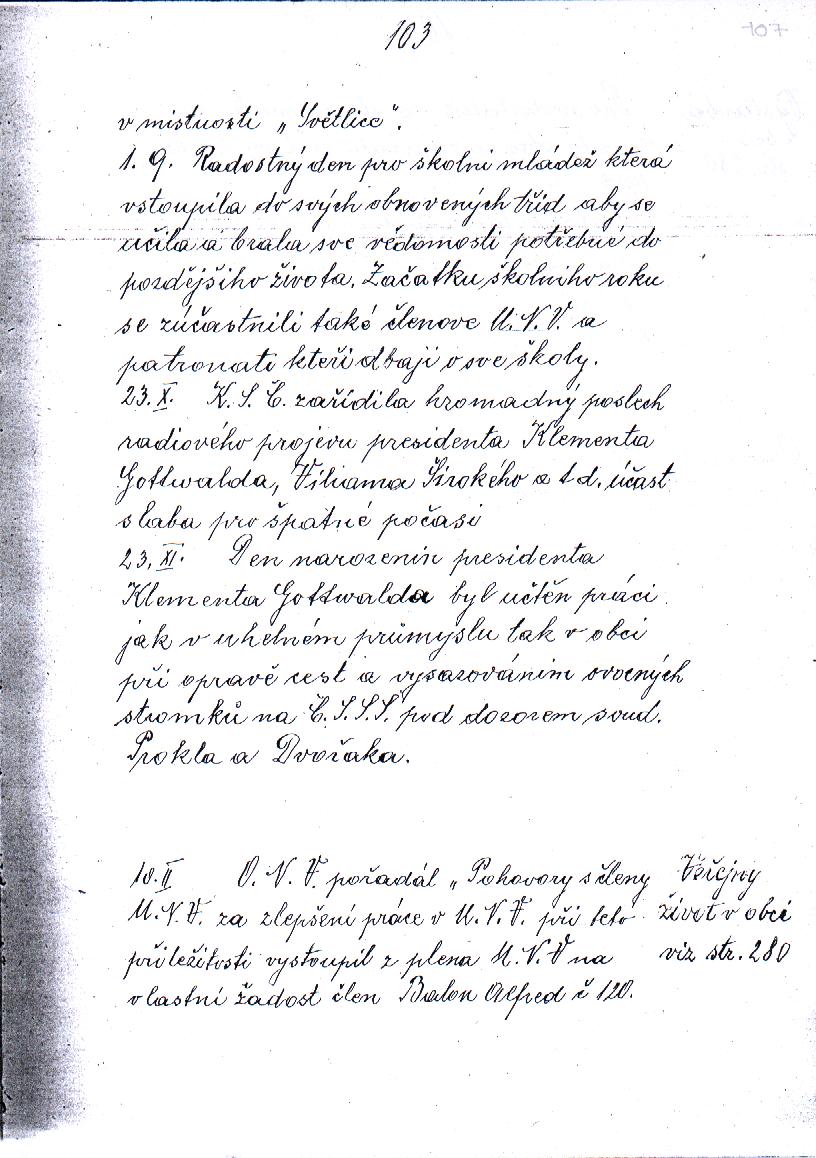 103
107
v mistnosti „Světlice".
1. 9. Radostný den pro školni mládež která
vstoupila do svých obnovených tříd aby se
učila a brala sve vědomosti potřebné do
pozdějšiho života. Začatku školniho roku
se zúčastnili také členove M. N. V. a
patronati kteři dbaji o sve školy.
23. X. K. S. Č. zařídila hromadný poslech
radiového projevu presidenta Klementa
Gottwalda, Viliama Širokého a t d. účast
slaba pro špatné počasi
23. XI. Den narozenin presidenta
Klementa Gottwalda byl učtěn práci
jak v uhelném průmyslu tak v obci
při opravě cest a vysazováním ovocných
stromků na Č. S. S. S. pod dozorem soud.
Prokla a Dvořaka.
10. II O. N. V. pořadál „Pohovory s členy
M. N. V. za zlepšení práce v M. N. V. při teto
přiležitosti vystoupil z plena M. N. V na
vlastní žadost člen Balon Alfred č 120.
Veřejny
život v obci
viz str. 280